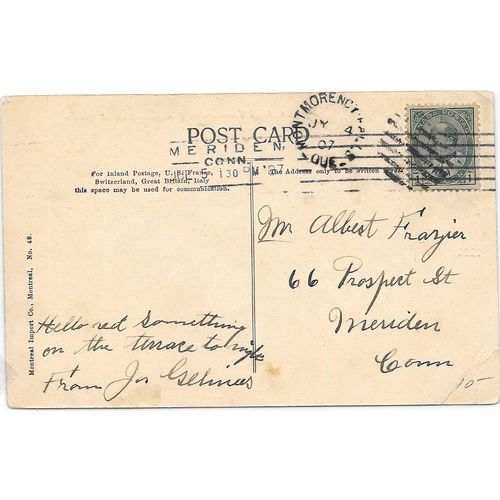 POST CARD
MONTMORENCY FALLS
JY 4
07
QUE.
CANADA POSTAGE
MERIDEN,
CONN.
130 PM '07
For Inland Postage, U. S. France,
Switzerland, Great Britain, Italy
this space may be used for communication.
The Address only to be written
Montreal Import Co., Montreal, No. 48.
Hello red something
on the terrace to nite
From Jos
Mr Albert Frazier
66 Prospect St
Meriden
Conn
10-